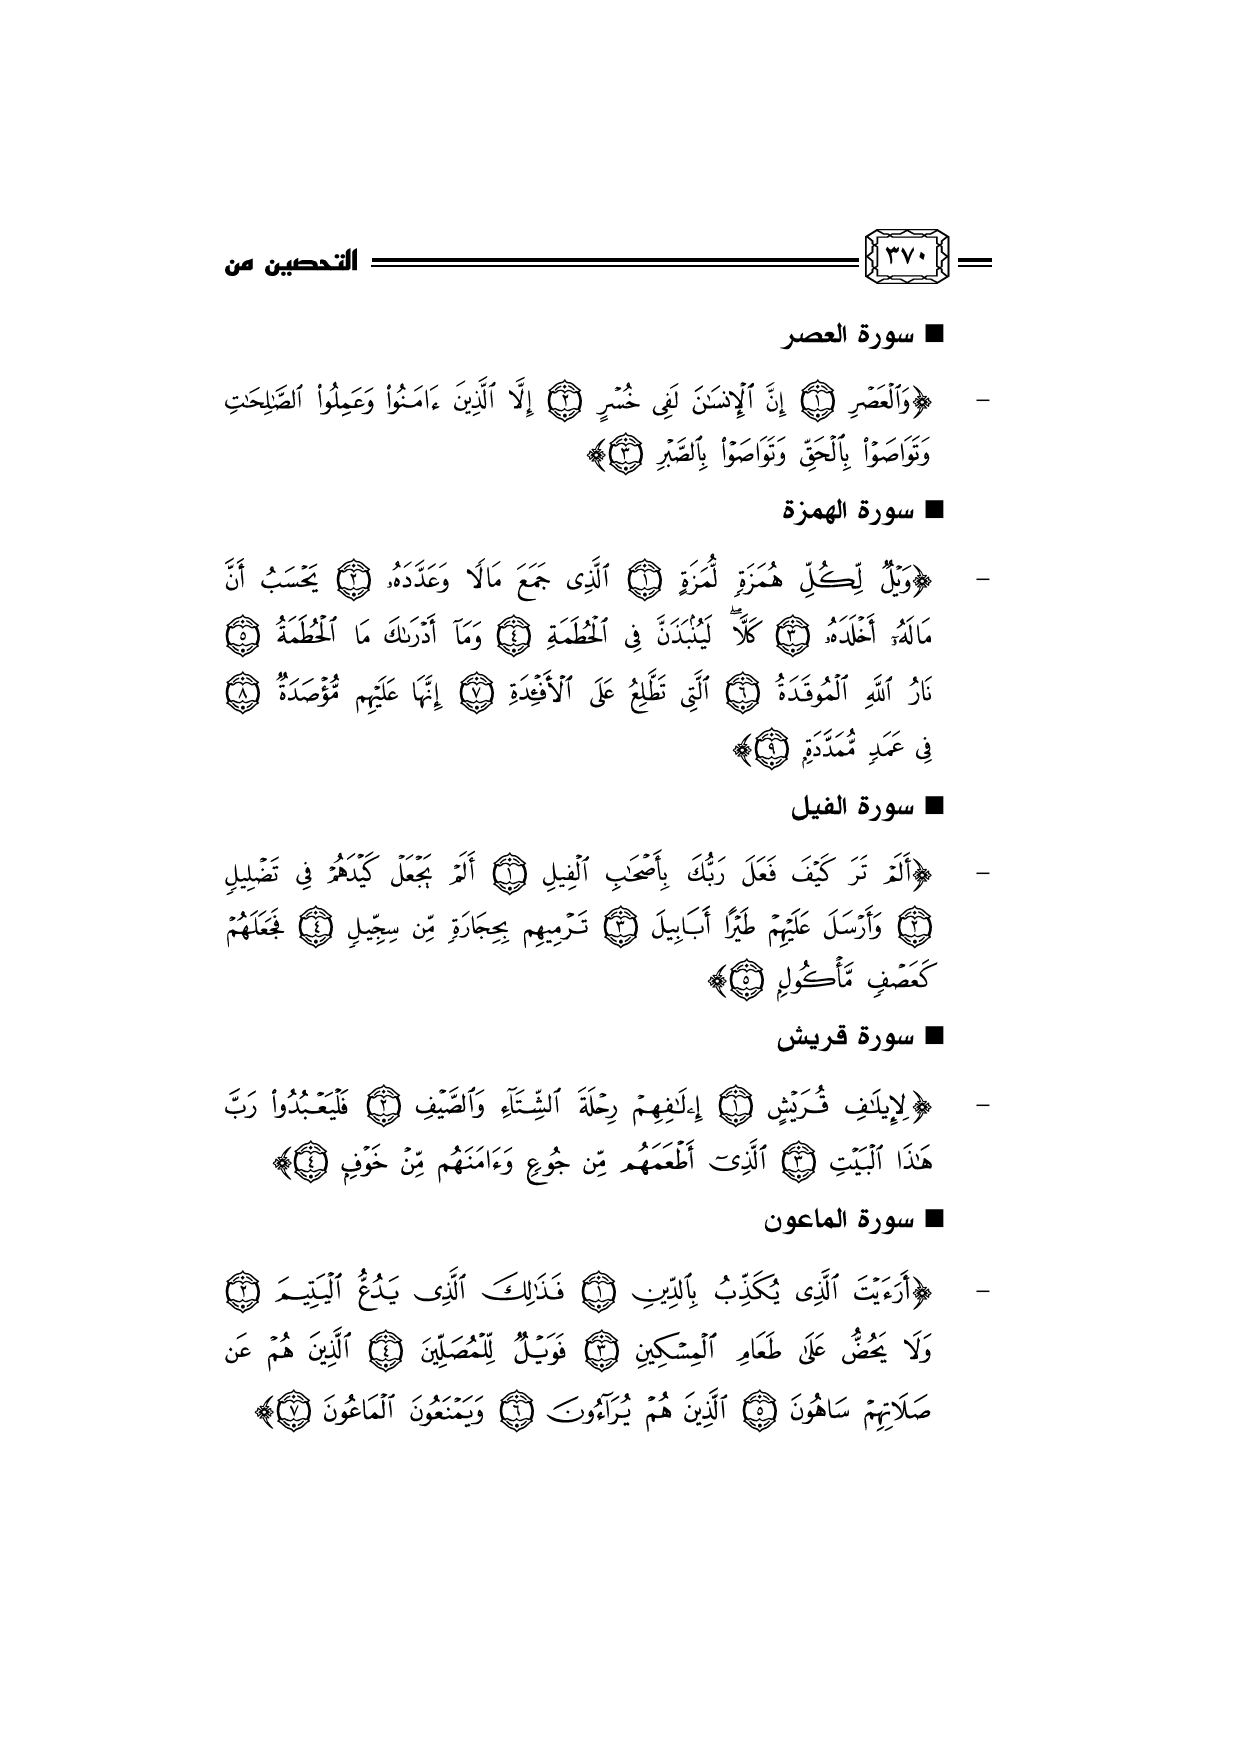 ٣٧٠ التحصين من
■ سورة العصر
- ﴿وَٱلۡعَصۡرِ ١ إِنَّ ٱلۡإِنسَٰنَ لَفِى خُسۡرٍ ٢ إِلَّا ٱلَّذِينَ ءَامَنُواْ وَعَمِلُواْ ٱلصَّٰلِحَٰتِ
وَتَوَاصَوۡاْ بِٱلۡحَقِّ وَتَوَاصَوۡاْ بِٱلصَّبۡرِ ٣﴾
■ سورة الهمزة
- ﴿وَيۡلٌ لِّكُلِّ هُمَزَةٍ لُّمَزَةٍ ١ ٱلَّذِى جَمَعَ مَالًا وَعَدَّدَهُۥ ٢ يَحۡسَبُ أَنَّ
مَالَهُۥٓ أَخۡلَدَهُۥ ٣ كَلَّاۖ لَيُنۢبَذَنَّ فِى ٱلۡحُطَمَةِ ٤ وَمَآ أَدۡرَىٰكَ مَا ٱلۡحُطَمَةُ ٥
نَارُ ٱللَّهِ ٱلۡمُوقَدَةُ ٦ ٱلَّتِى تَطَّلِعُ عَلَى ٱلۡأَفۡـِٔدَةِ ٧ إِنَّهَا عَلَيۡهِم مُّؤۡصَدَةٌ ٨
فِى عَمَدٍ مُّمَدَّدَةِۭ ٩﴾
■ سورة الفيل
- ﴿أَلَمۡ تَرَ كَيۡفَ فَعَلَ رَبُّكَ بِأَصۡحَٰبِ ٱلۡفِيلِ ١ أَلَمۡ يَجۡعَلۡ كَيۡدَهُمۡ فِى تَضۡلِيلٍ
٢ وَأَرۡسَلَ عَلَيۡهِمۡ طَيۡرًا أَبَابِيلَ ٣ تَرۡمِيهِم بِحِجَارَةٍ مِّن سِجِّيلٍ ٤ فَجَعَلَهُمۡ
كَعَصۡفٍ مَّأۡكُولِۭ ٥﴾
■ سورة قريش
- ﴿لِإِيلَٰفِ قُرَيۡشٍ ١ إِۦلَٰفِهِمۡ رِحۡلَةَ ٱلشِّتَآءِ وَٱلصَّيۡفِ ٢ فَلۡيَعۡبُدُواْ رَبَّ
هَٰذَا ٱلۡبَيۡتِ ٣ ٱلَّذِىٓ أَطۡعَمَهُم مِّن جُوعٍ وَءَامَنَهُم مِّنۡ خَوۡفِۭ ٤﴾
■ سورة الماعون
- ﴿أَرَءَيۡتَ ٱلَّذِى يُكَذِّبُ بِٱلدِّينِ ١ فَذَٰلِكَ ٱلَّذِى يَدُعُّ ٱلۡيَتِيمَ ٢
وَلَا يَحُضُّ عَلَىٰ طَعَامِ ٱلۡمِسۡكِينِ ٣ فَوَيۡلٌ لِّلۡمُصَلِّينَ ٤ ٱلَّذِينَ هُمۡ عَن
صَلَاتِهِمۡ سَاهُونَ ٥ ٱلَّذِينَ هُمۡ يُرَآءُونَ ٦ وَيَمۡنَعُونَ ٱلۡمَاعُونَ ٧﴾